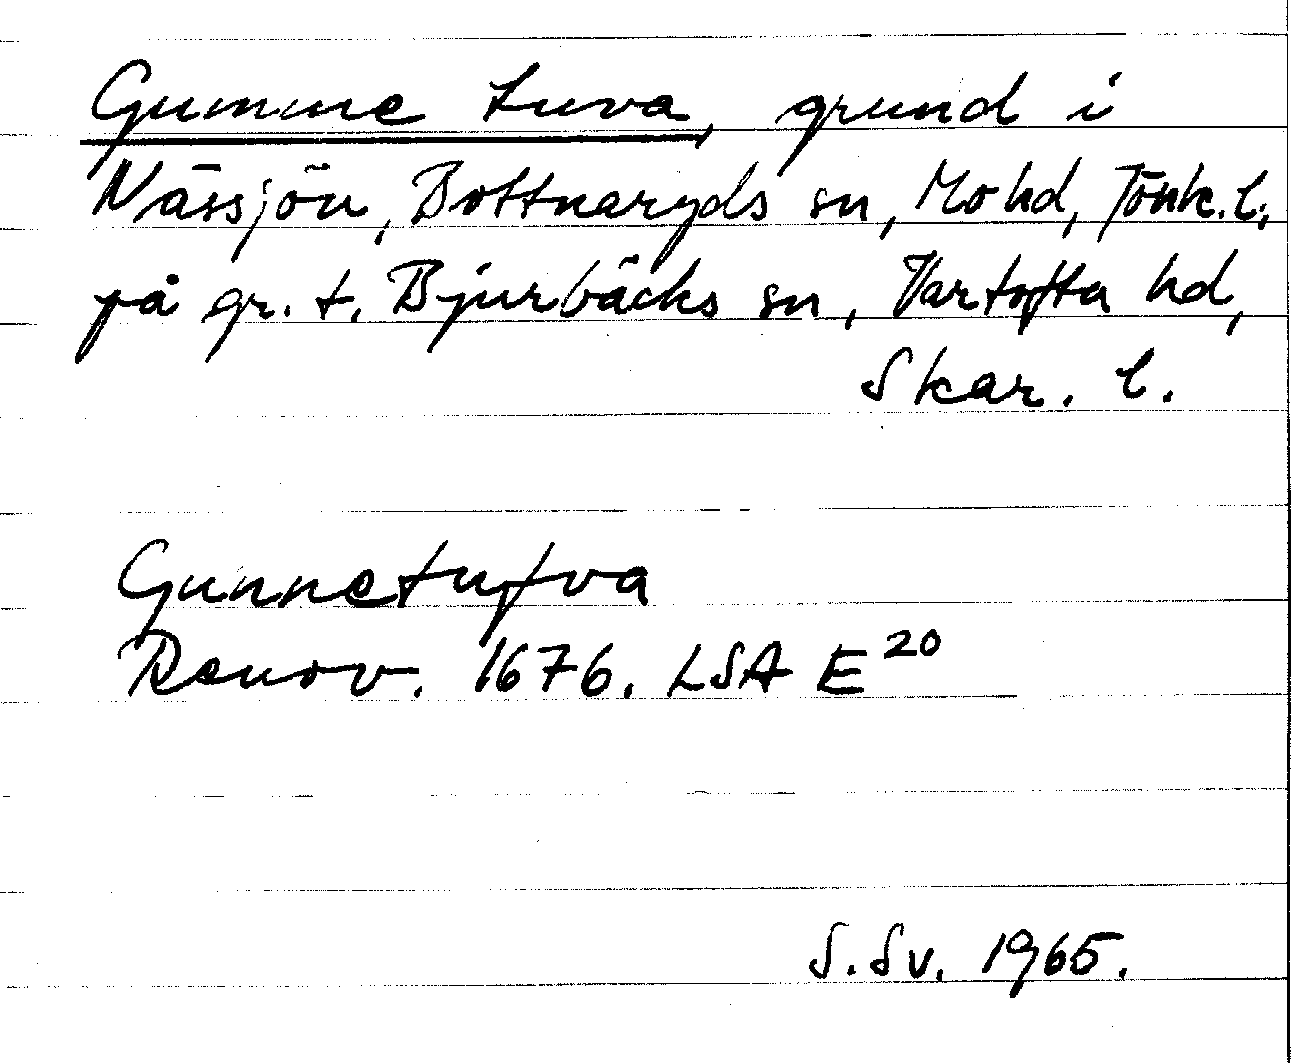 Gumme tuva, grund i
Nässjön, Bottnaryds sn, Mo hd, Jönk. l.
på gr. t. Bjurbäcks sn, Vartofta hd,
Skar. l.
Gunnetufva
Renov. 1676. LSA E20
S. Sv. 1965.